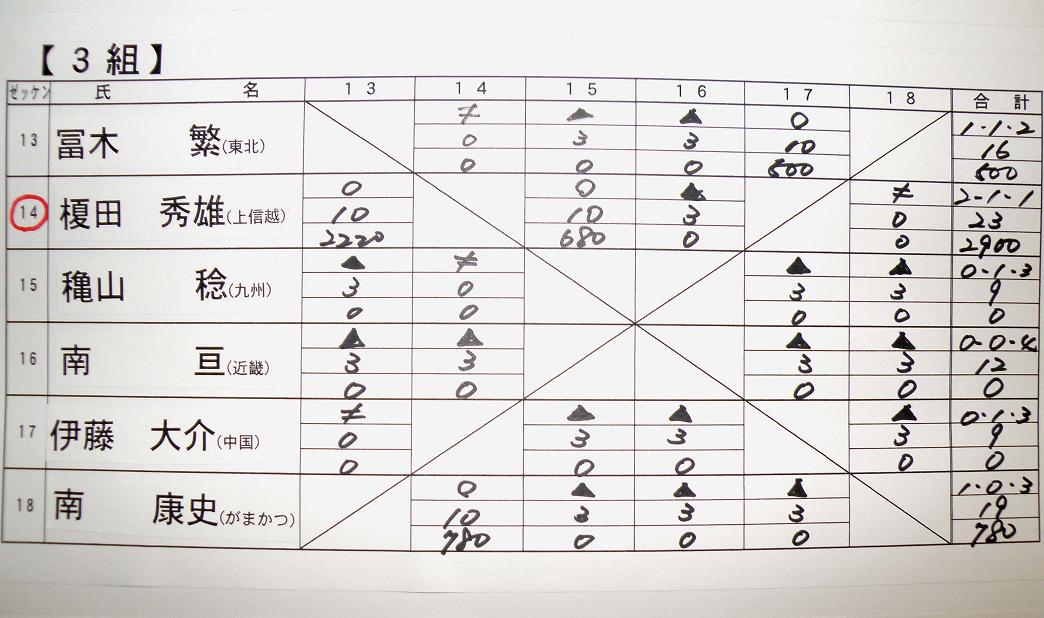 【 3 組 】
ゼッケン 氏 名 13 14 15 16 17 18 合 計
≠ ▲ ▲ 0 1-1-2
13 冨木 繁(東北) 0 3 3 10 16
0 0 0 500 500
0 0 ▲ ≠ 2-1-1
14 榎田 秀雄(上信越) 10 10 3 0 23
2220 680 0 0 2900
▲ ≠ ▲ ▲ 0-1-3
15 穐山 稔(九州) 3 0 3 3 9
0 0 0 0 0
▲ ▲ ▲ ▲ 0-0-4
16 南 亘(近畿) 3 3 3 3 12
0 0 0 0 0
≠ ▲ ▲ ▲ 0-1-3
17 伊藤 大介(中国) 0 3 3 3 9
0 0 0 0 0
0 ▲ ▲ ▲ 1-0-3
18 南 康史(がまかつ) 10 3 3 3 19
780 0 0 0 780